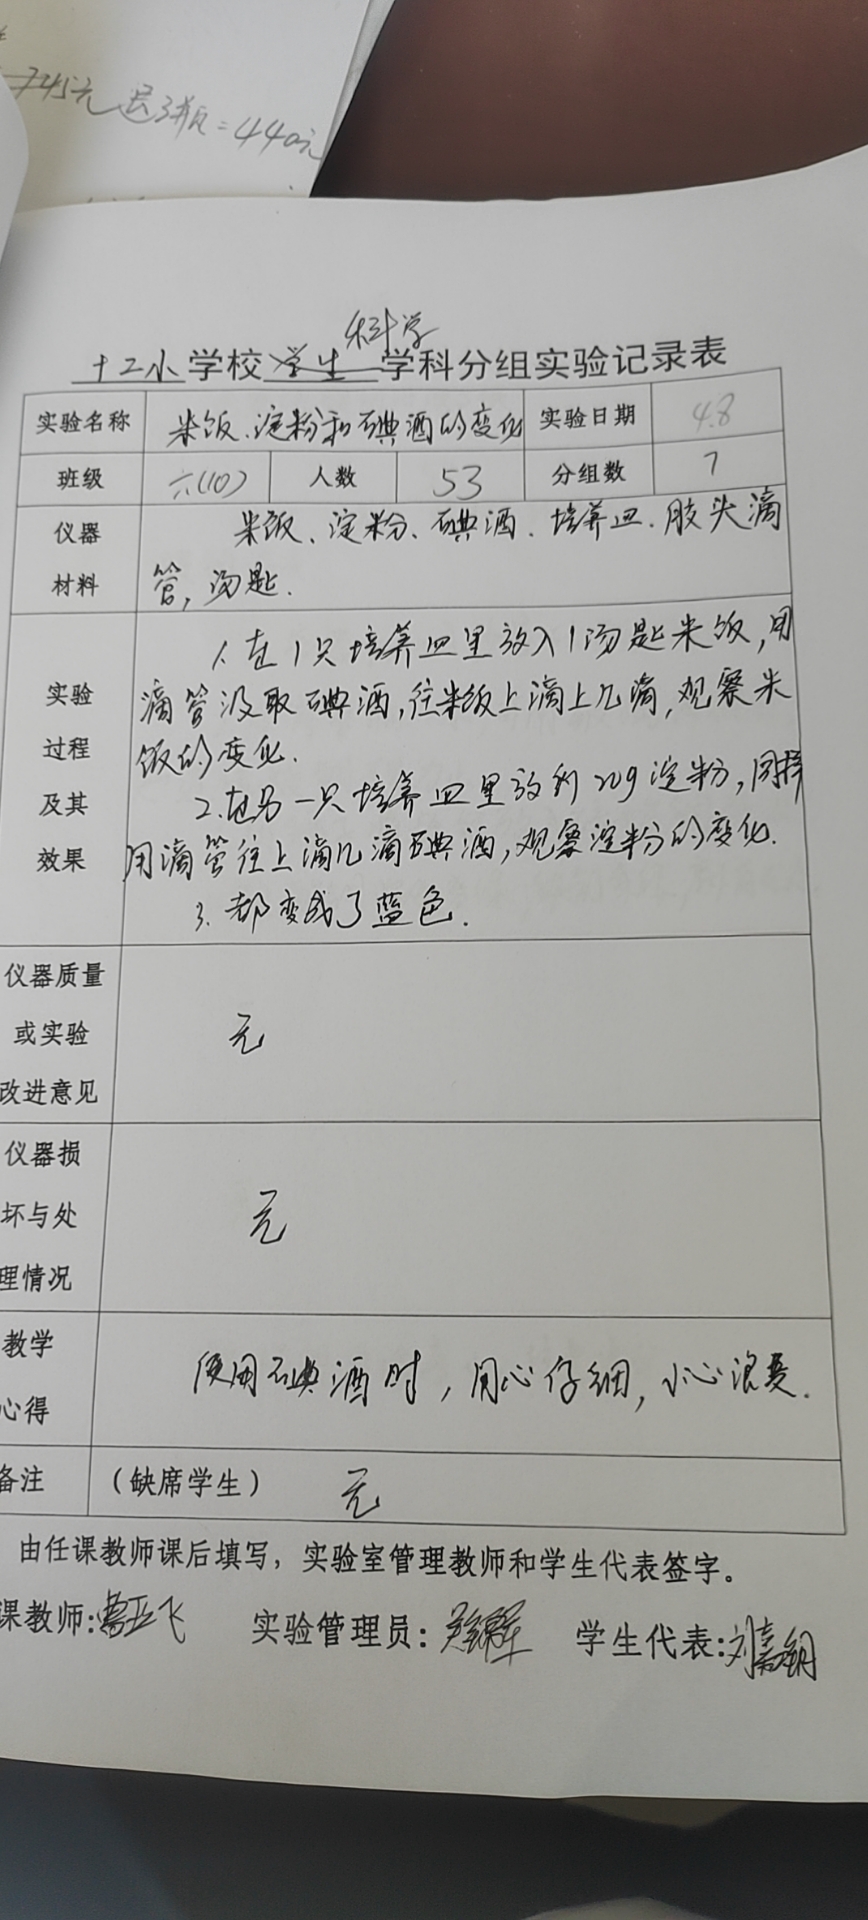 745元 退3瓶=440元
科学
十二小学校学生学科分组实验记录表
实验名称 米饭、淀粉和碘酒的变化 实验日期 4.8
班级 六(10) 人数 53 分组数 7
仪器材料 米饭、淀粉、碘酒、培养皿、胶头滴
管,汤匙.
实验过程及其效果
1、在1只培养皿里放入1汤匙米饭,用
滴管汲取碘酒,往米饭上滴上几滴,观察米
饭的变化.
2.在另一只培养皿里放到20g淀粉,同样
用滴管往上滴几滴碘酒,观察淀粉的变化.
3.都变成了蓝色.
仪器质量或实验改进意见 无
仪器损坏与处理情况 无
教学心得 使用碘酒时,用心仔细,小心浪费.
备注 (缺席学生) 无
由任课教师课后填写,实验室管理教师和学生代表签字。
课教师: 实验管理员: 学生代表:刘嘉钥